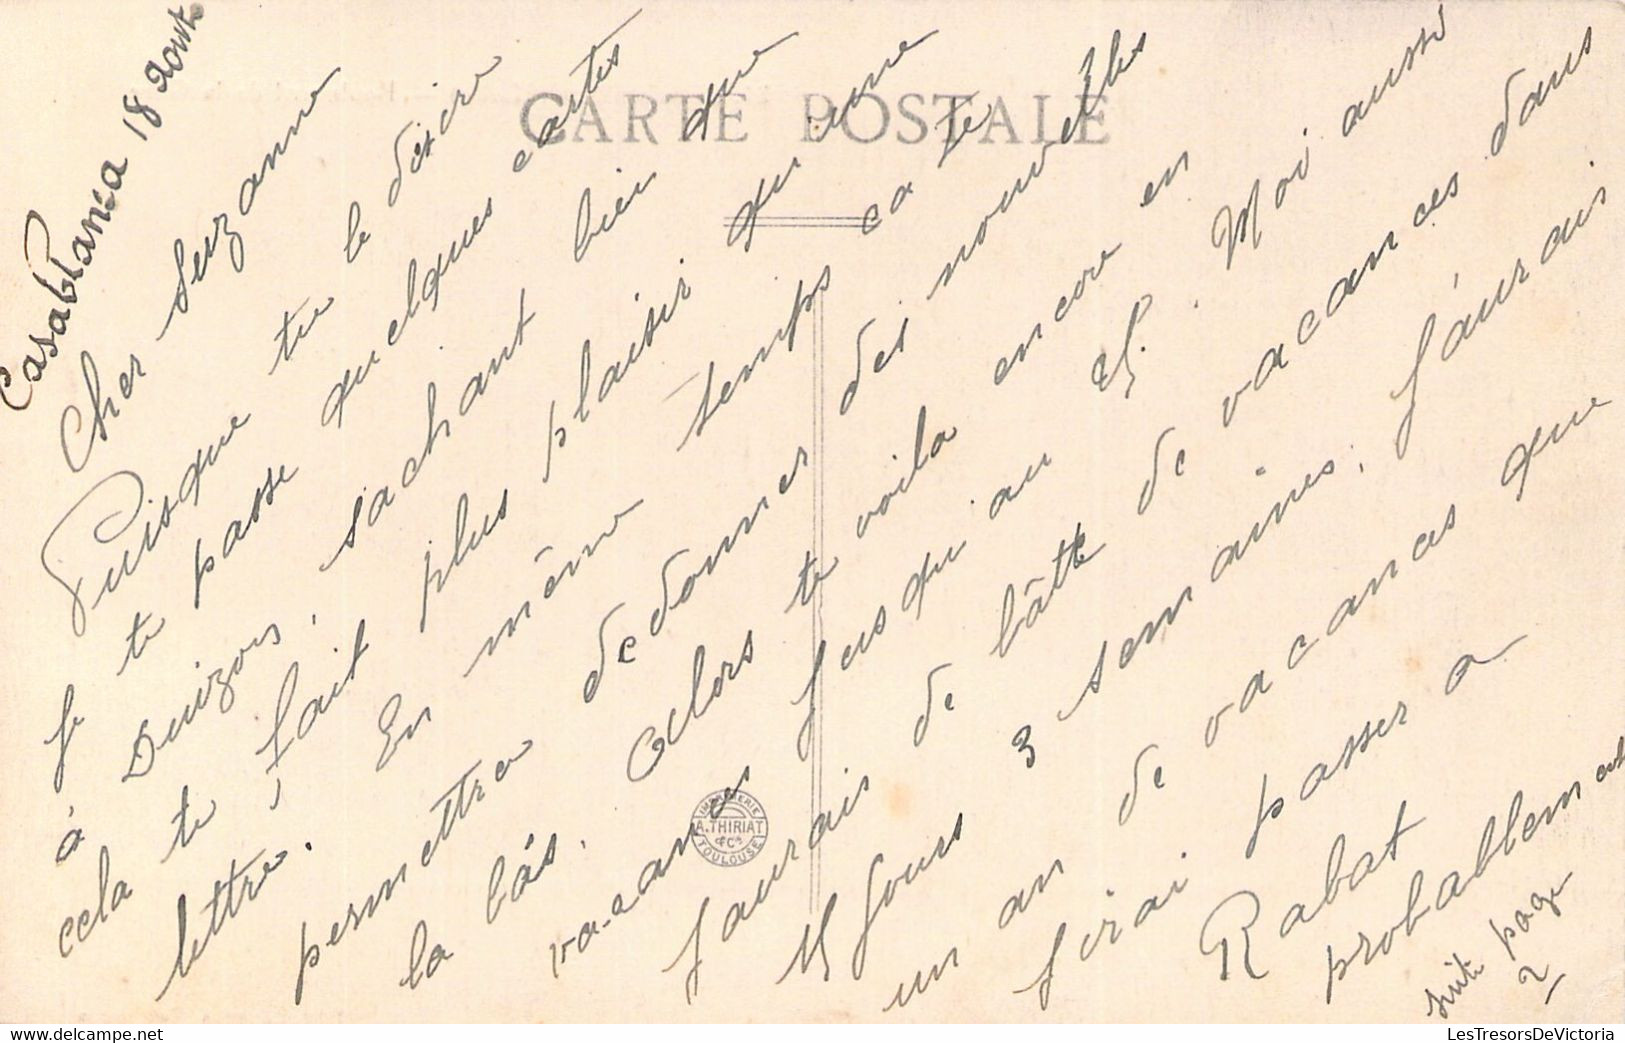 CARTE POSTALE
Casablanca 18 aout
Cher Suzanne
Puisque tu le désire
je te passe quelques cartes
à Duizon, sachant bien que
cela te fait plus plaisir qu'une
lettre. En même temps ca te
permettra de donner des nouvelles
la bás. Alors te voila encore en
vacances jusqu'au 15. Moi aussi
j'aurais de bâtte de vacances dans
15 jours 3 semaines. J'áurais
un an de vacances que
j'irai passer a
Rabat
probablement
suite page
2
IMPRIMERIE
A. THIRIAT
& Cie
TOULOUSE
LesTresorsDeVictoria